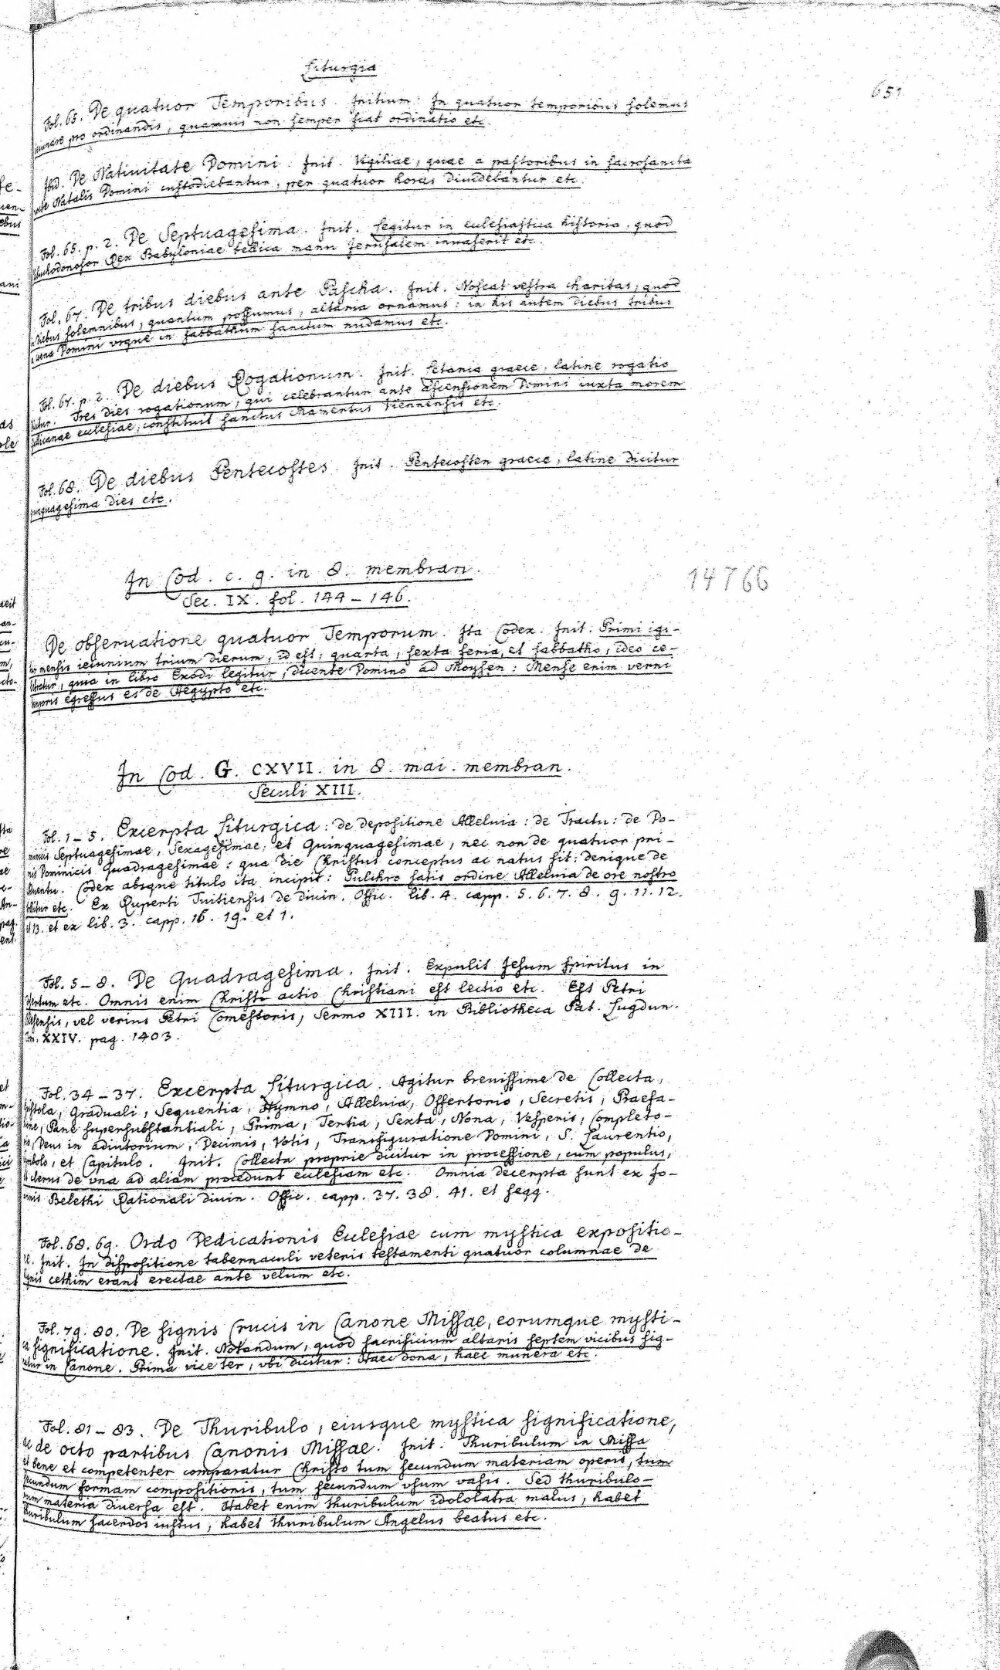 Liturgia
651
Fol. 63. De quatuor Temporibus. Initium: In quatuor temporibus solemus
pro ordinandis, quamuis non semper fiat ordinatio etc.
Ibid. De Natiuitate Domini. Init. Vigiliae, quae a pastoribus in sacrosancta
Natalis Domini custodiebantur, per quatuor horas diuidebantur etc.
Fol. 65. p. 2. De Septuagesima. Init. Legitur in eclesiastica historia, quod
Rex Babyloniae bellica manu Jerusalem inuaserit etc.
Fol. 67. De tribus diebus ante Pascha. Init. Noscat vestra charitas, quod
diebus solemnibus, quantum possumus, altaria ornamus: in his autem diebus tribus
Domini vsque in sabbathum sanctum nudamus etc.
Fol. 67. p. 2. De diebus Rogationum. Init. Letania graece, latine rogatio
Tres dies rogationum, qui celebrantur ante Ascensionem Domini iuxta morem
eclesiae, constituit sanctus Mamertus Viennensis etc.
Fol. 68. De diebus Pentecostes. Init. Pentecosten graece, latine dicitur
quinquagesima dies etc.
In Cod. c. g. in 8. membran.
Sec. IX. fol. 144 – 146.
14766
De obseruatione quatuor Temporum. Ita Codex. Init. Primi igi-
mensis ieiunium trium dierum, id est, quarta, sexta feria, et sabbatho, ideo ce-
quia in libro Exodi legitur, dicente Domino ad Moysen: Mense enim verni
egressus es de Aegypto etc.
In Cod. G. CXVII. in 8. mai. membran.
Seculi XIII.
Fol. 1 – 5. Excerpta Liturgica: de depositione Alleluia: de Tractu: de Do-
Septuagesimae, Sexagesimae, et Quinquagesimae, nec non de quatuor pri-
Dominicis Quadragesimae: qua die Christus conceptus ac natus sit: denique de
Codex absque titulo ita incipit: Pulchro satis ordine Alleluia de ore nostro
etc. Ex Ruperti Tuitiensis de diuin. Offic. lib. 4. capp. 5. 6. 7. 8. 9. 11. 12.
13. et ex lib. 3. capp. 16. 19. et 1.
Fol. 5 – 8. De Quadragesima. Init. Expulit Jesum spiritus in
etc. Omnis enim Christi actio Christiani est lectio etc. Est Petri
vel verius Petri Comestoris, Sermo XIII. in Bibliotheca Pat. Lugdun.
XXIV. pag. 1403.
Fol. 34 – 37. Excerpta Liturgica. Agitur breuissime de Collecta,
Graduali, Sequentia, Hymno, Alleluia, Offertorio, Secretis, Praefa-
Pane supersubstantiali, Prima, Tertia, Sexta, Nona, Vesperis, Completo-
Deus in adiutorium, Decimis, Votis, Transfiguratione Domini, S. Laurentio,
et Capitulo. Init. Collecta proprie dicitur in processione, cum populus,
clerus de vna ad aliam procedunt eclesiam etc. Omnia decerpta sunt ex Jo-
Belethi Rationali diuin. Offic. capp. 37. 38. 41. et seqq.
Fol. 68. 69. Ordo Dedicationis Eclesiae cum mystica expositio-
Init. In dispositione tabernaculi veteris testamenti quatuor columnae de
cethim erant erectae ante velum etc.
Fol. 79. 80. De signis Crucis in Canone Missae, eorumque mysti-
ca significatione. Init. Notandum, quod sacrificium altaris septem vicibus sig-
in Canone. Prima vice ter, vbi dicitur: Haec dona, haec munera etc.
Fol. 81 – 83. De Thuribulo, eiusque mystica significatione,
de octo partibus Canonis Missae. Init. Thuribulum in Missa
bene et competenter comparatur Christo tum secundum materiam operis, tum
secundum formam compositionis, tum secundum vsum vasis. Sed thuribulo-
rum materia diuersa est. Habet enim thuribulum idololatra malus, habet
thuribulum sacerdos iustus, habet thuribulum Angelus beatus etc.